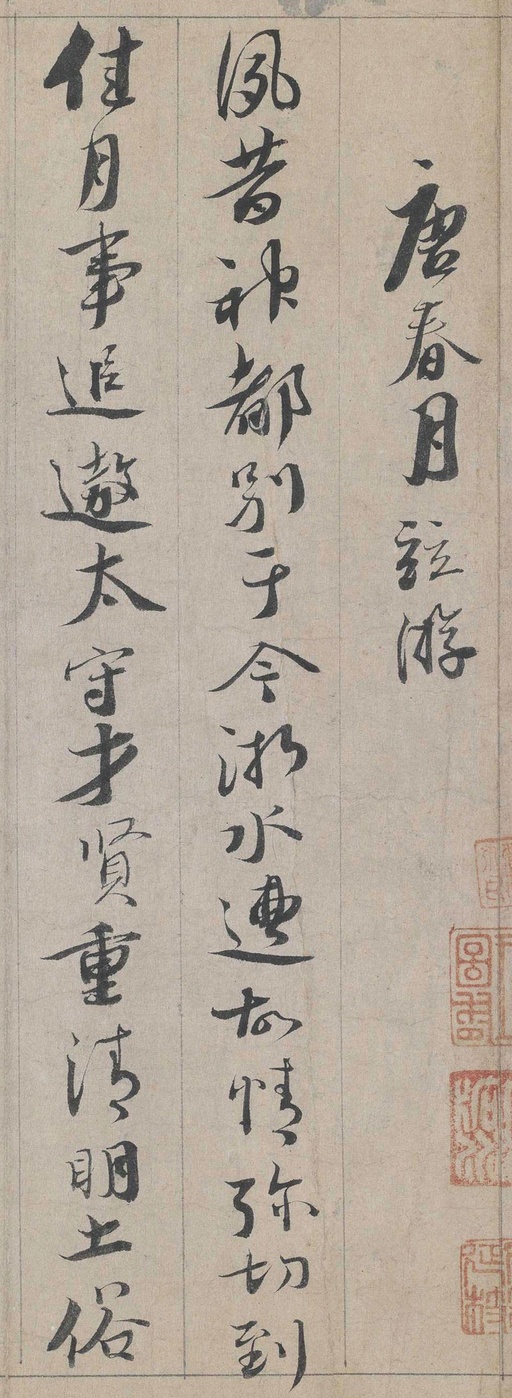 唐春月游
夙昔神都別于今浙水遭故情弥切到
佳月事追遨太守才贤重清明土俗